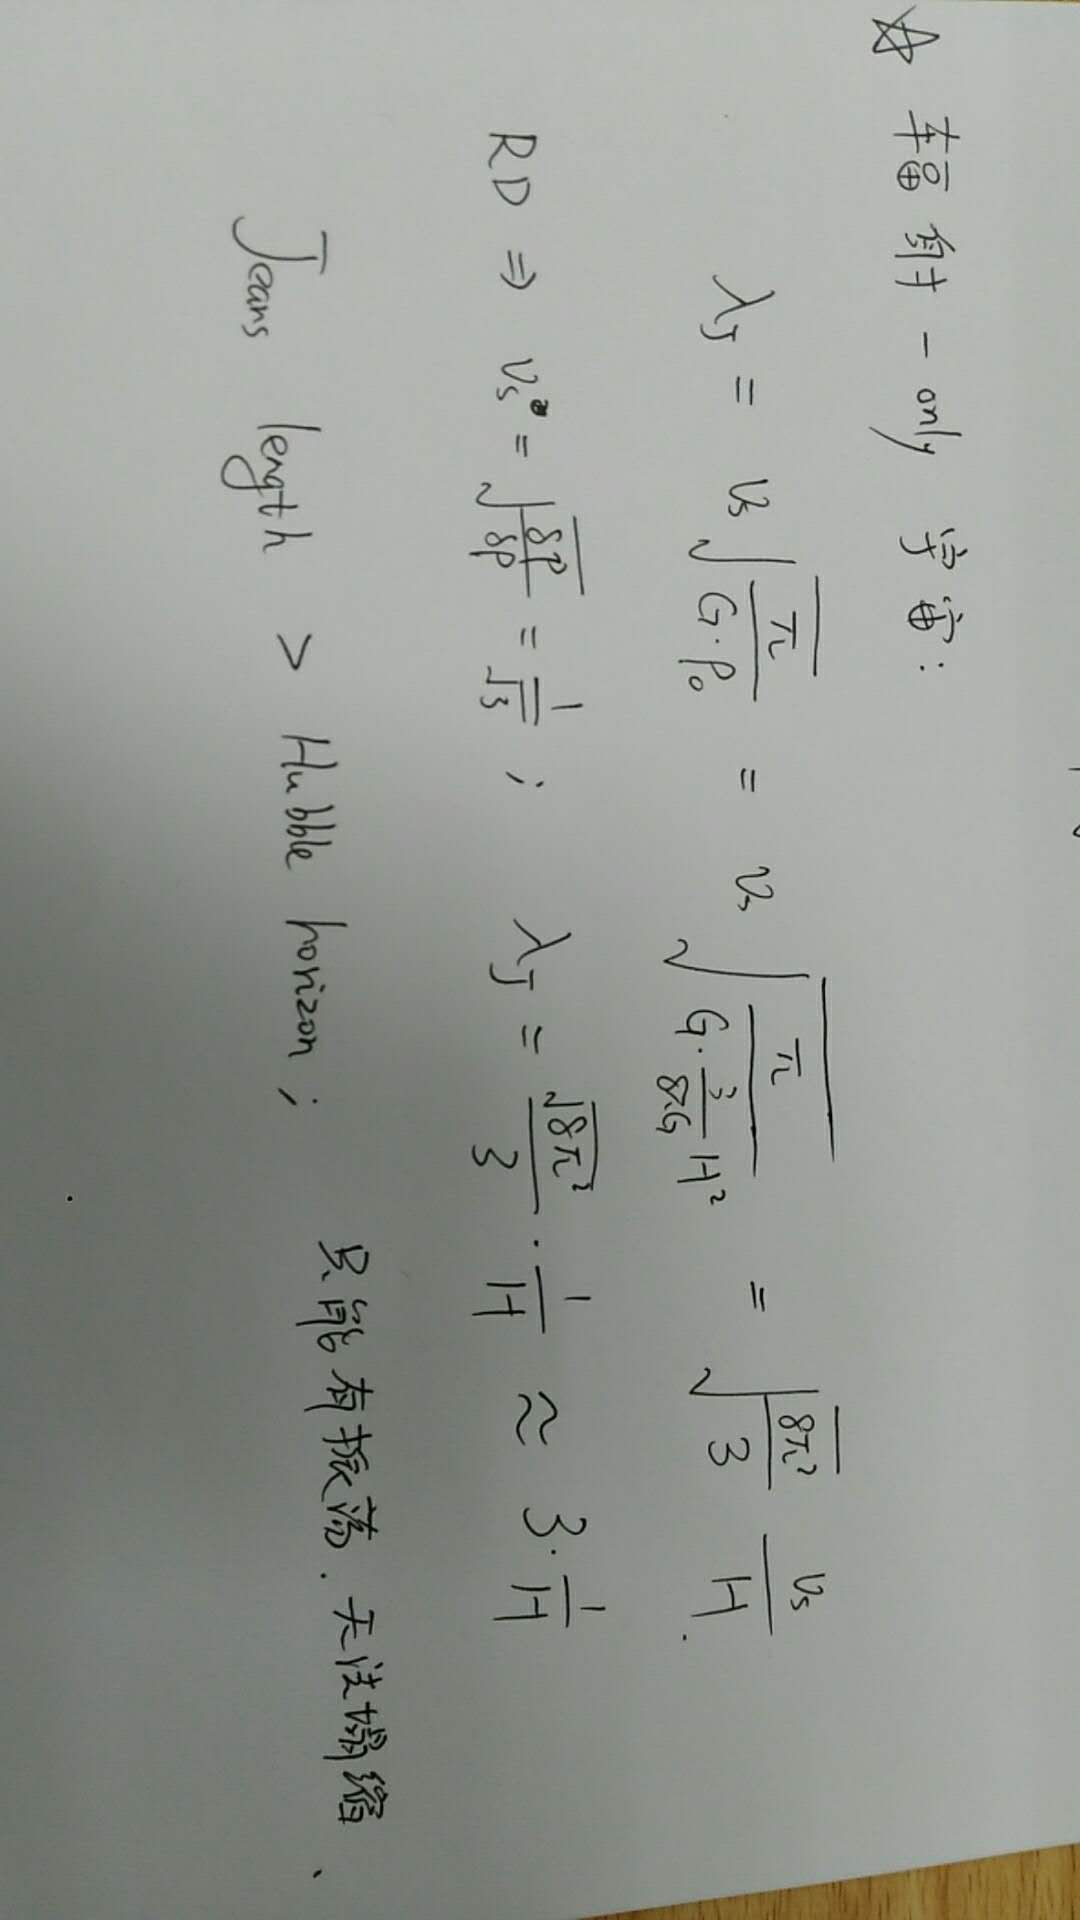 ☆ 辐射-only 宇宙:
λ_J = v_s √(π / (G·ρ₀)) = v_s √(π / (G·(3/8πG)H²)) = √(8π²/3) v_s/H.
RD ⇒ v_s = √(δP/δρ) = 1/√3 ; λ_J = √(8π²)/3 · 1/H ≈ 3·1/H
Jeans length > Hubble horizon ; 只能有振荡.无法塌缩.